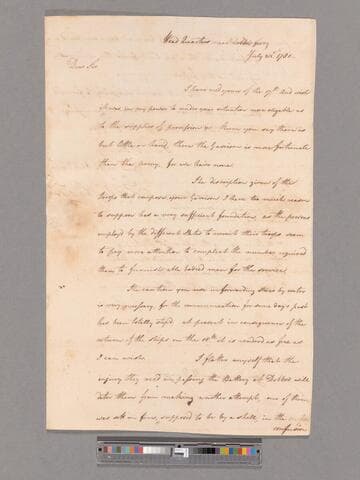 Head Quarters near Dobbs ferry
July 21st 1781.
Dear Sir
I have recd yours of the 17th and wish
it was in my power to render your situation more eligible as
to the supplies of provision &c them you say there is
but little on hand, then the Garrison is more fortunate
than the Army, for we have none.
The description given of the
troops that compose your Garrison I have too much reason
to suppose has a very sufficient foundation, as the persons
employd by the different States to recruit their troops seem
to pay more attention to compleat the number required
than to furnish able bodied men for the service.
The caution you use in forwarding Stores by water
is very necessary, for the communication for some days past
has been totally stopd at present in consequence of the
return of the ships on the 19th it is rendered as free as
I can wish.
I flatter myself that the
injury they recd in passing the Battery at Dobbs's will
deter them from making another attempt, one of them
was set on fire, supposed to be by a shell, in the
confusion